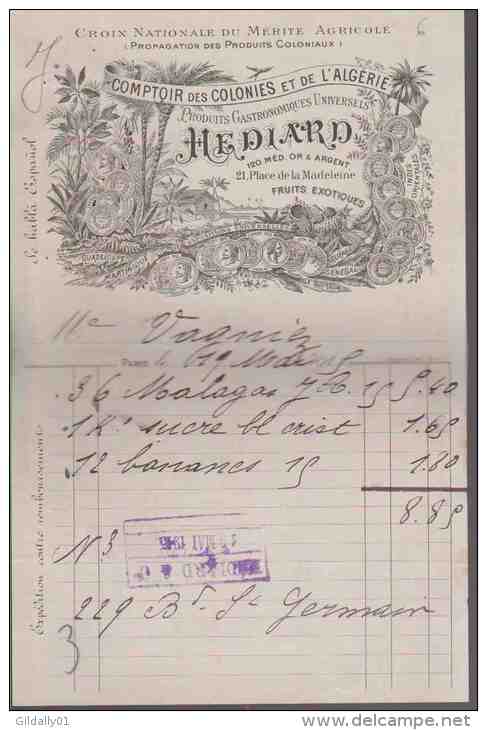 Croix Nationale du Mérite Agricole
(Propagation des Produits Coloniaux)
COMPTOIR DES COLONIES ET DE L'ALGÉRIE
Produits Gastronomiques Universels
HEDIARD
120 MÉD. OR & ARGENT
21, Place de la Madeleine
FRUITS EXOTIQUES
GUADELOUPE
MARTINIQUE
SÉNÉGAL
Se habla Español
Expédition contre remboursement
Vagniez
Paris, le 19 Mai
36 Malagas 15 5.40
1 K° sucre bl crist 1.65
12 bananes 15 1.80
8.85
N 3
HEDIARD & Cie
MAI 19
229 Bd St Germain
3
Gildally01
delcampe.net